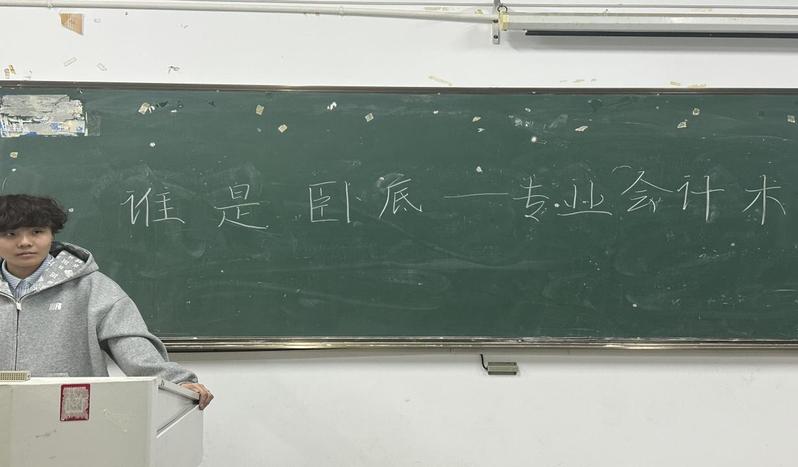 谁是卧底—专业会计术